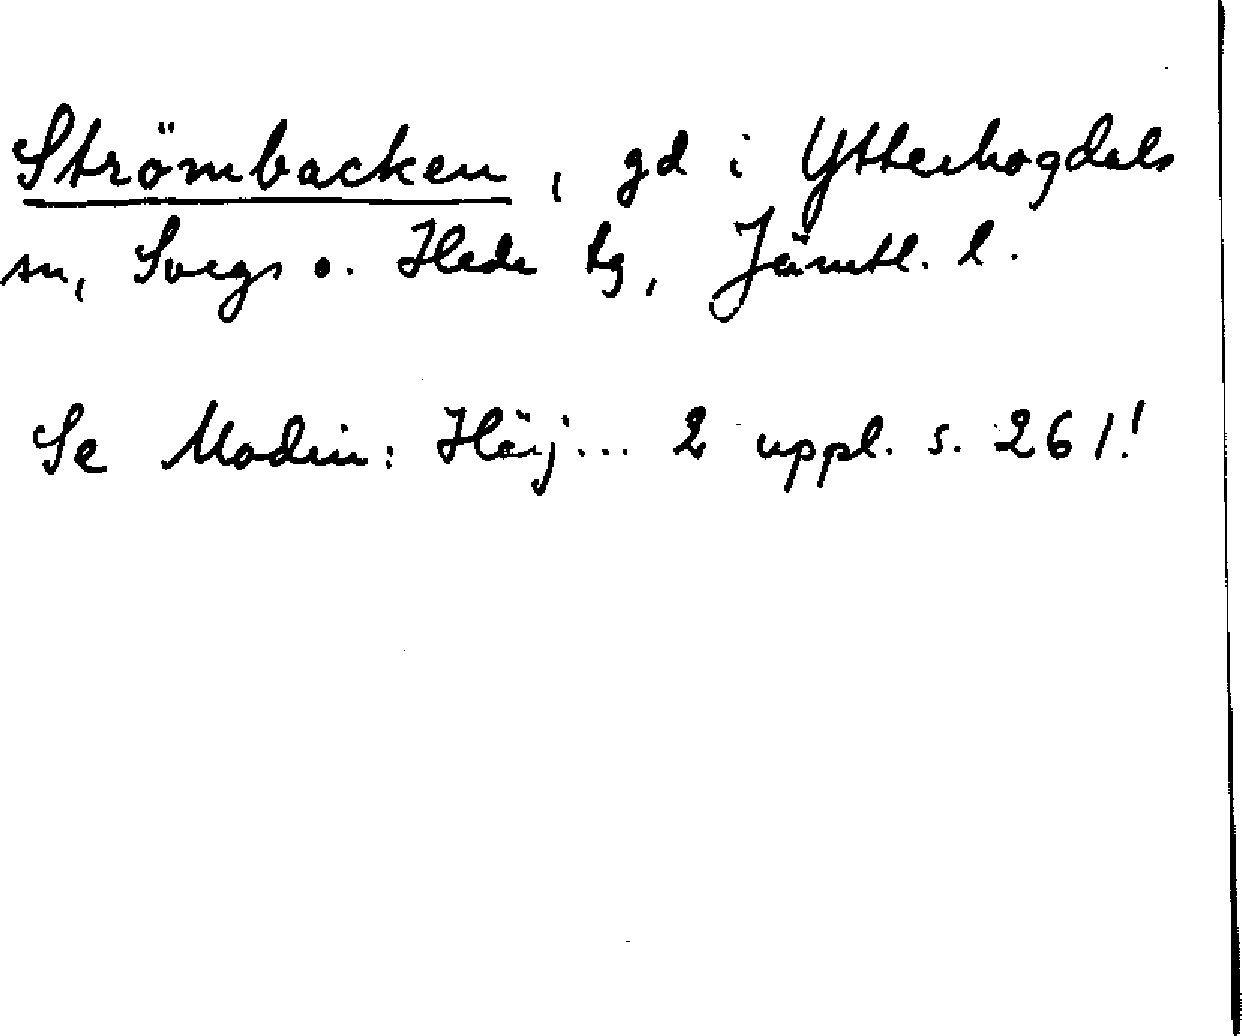 Strömbacken, gd i Ytterhogdals
sn, Svegs o. Hede tg, Jämtl. l.
Se Modin: Härj... 2 uppl. s. 261!